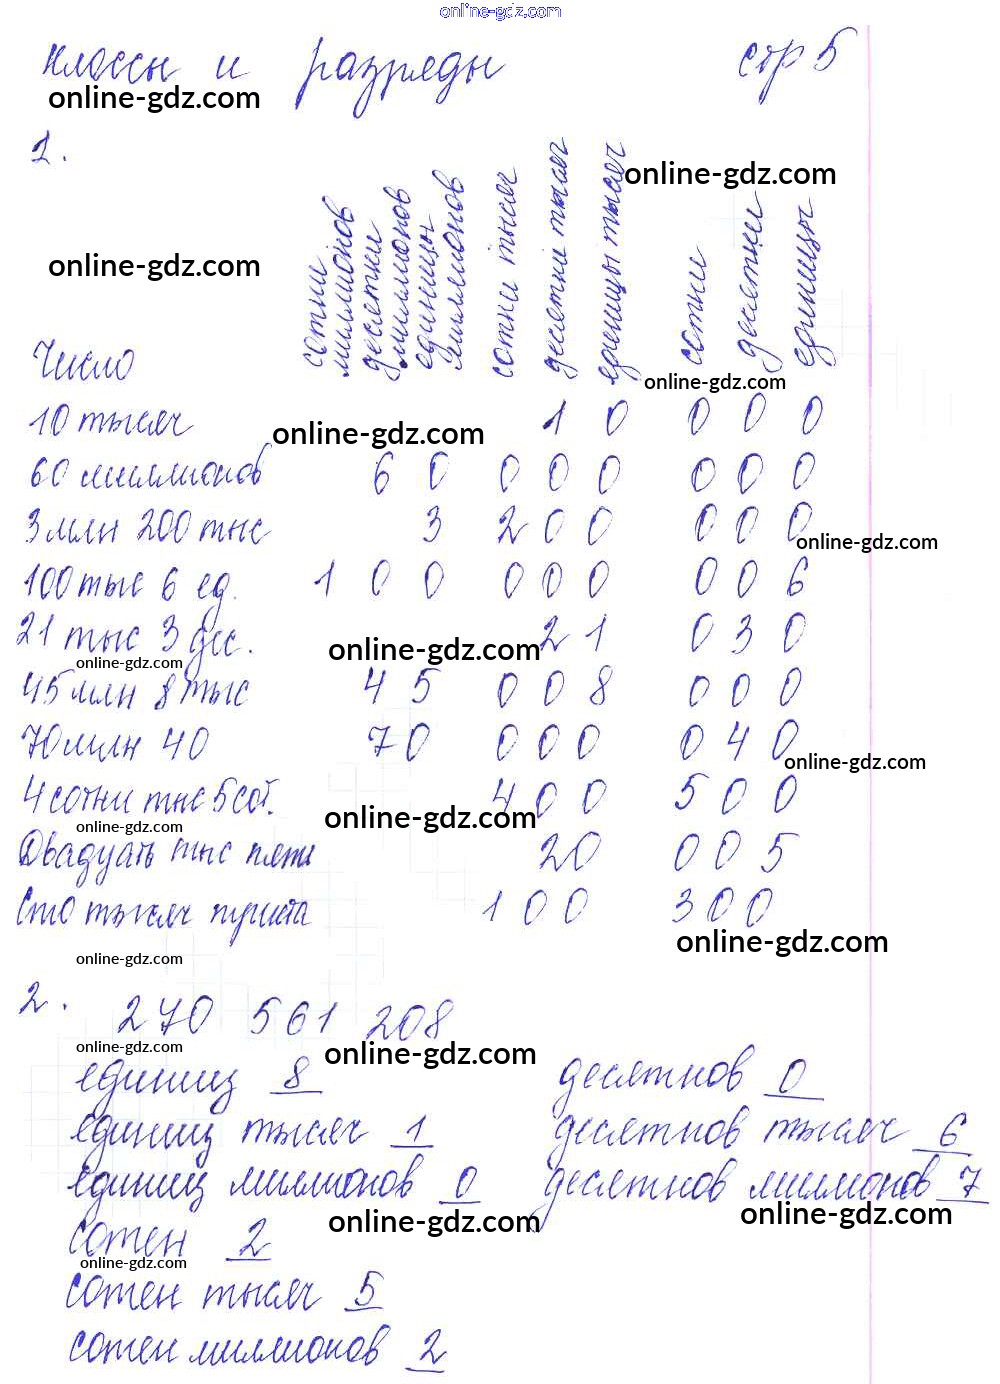 online-gdz.com
Классы и разряды стр 5
online-gdz.com
1.
online-gdz.com
online-gdz.com
Число сотни миллионов десятки миллионов единицы миллионов сотни тысяч десятки тысяч единицы тысяч сотни десятки единицы
online-gdz.com
10 тысяч 1 0 0 0 0
online-gdz.com
60 миллионов 6 0 0 0 0 0 0 0
3 млн 200 тыс 3 2 0 0 0 0 0
online-gdz.com
100 тыс 6 ед. 1 0 0 0 0 0 0 0 6
21 тыс 3 дес. 2 1 0 3 0
online-gdz.com
online-gdz.com
45 млн 8 тыс 4 5 0 0 8 0 0 0
70 млн 40 7 0 0 0 0 0 4 0
online-gdz.com
4 сотни тыс 5 сот. 4 0 0 5 0 0
online-gdz.com
online-gdz.com
Двадцать тыс пять 2 0 0 0 5
Сто тысяч 1 0 0 3 0 0
online-gdz.com
online-gdz.com
2. 270 561 208
online-gdz.com
online-gdz.com
единиц 8 десятков 0
единиц тысяч 1 десятков тысяч 6
единиц миллионов 0 десятков миллионов 7
online-gdz.com
online-gdz.com
сотен 2
online-gdz.com
сотен тысяч 5
сотен миллионов 2